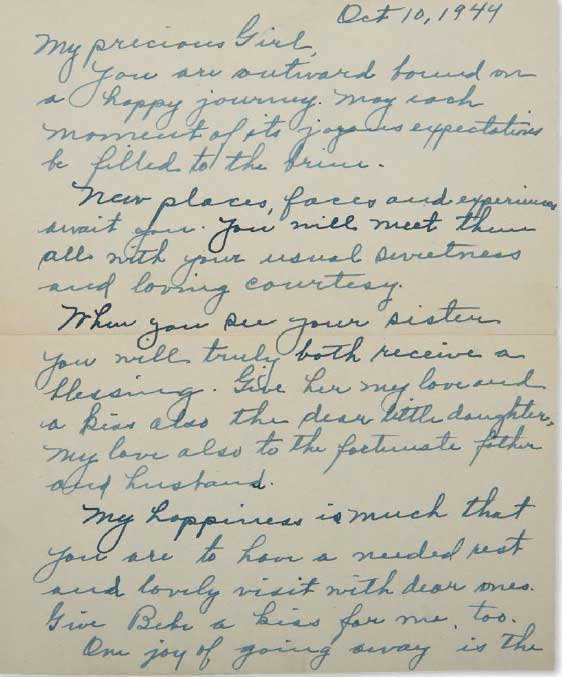 Oct 10, 1944
My precious Girl,
You are outward bound on
a happy journey. May each
moment of its joyous expectations
be filled to the brim.
New places, faces and experiences
await you. You will meet them
all with your usual sweetness
and loving courtesy.
When you see your sister
you will truly both receive a
blessing. Give her my love and
a kiss also the dear little daughter,
my love also to the fortunate father
and husband.
My happiness is much that
you are to have a needed rest
and lovely visit with dear ones.
Give a kiss for me, too.
One joy of going away is the